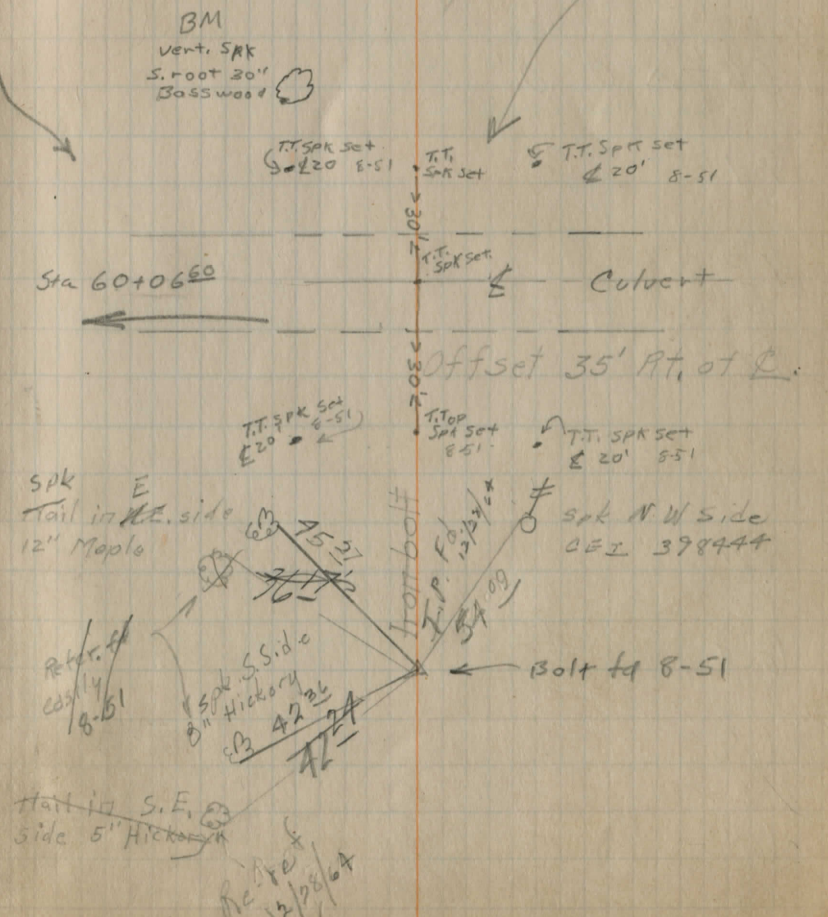 BM
vert. Spk
S. root 30"
Basswood
T.T. Spk set
℄ 20' 8-51
T.T.
Spk set
T.T. Spk set
℄ 20' 8-51
30'±
T.T.
Spk set.
Sta 60+06 60
℄ Culvert
30'±
Offset 35' Rt. of ℄.
T.T. Spk set
8-51
℄ 20'
T.Top
Spk set
8-51
T.T. Spk set
℄ 20' 8-51
Spk E
Nail in N.E. side
12" Maple
45 27
36
I.P. Fd.
Spk N.W Side
CEI 398444
34 09
Refer. fd
easily
8-51
Spk. S. Side
8" Hickory
42 36
42 24
Bolt fd 8-51
Nail in S.E.
side 5" Hickory
Re-Ref
12/28/64